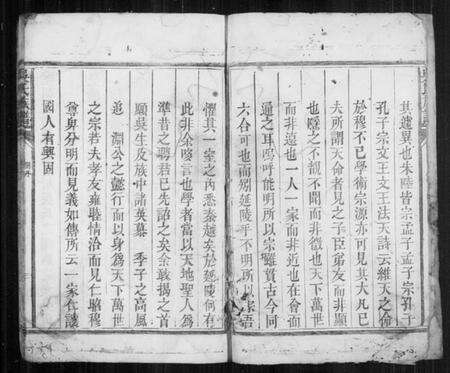 其遽異也朱陸皆宗孟子孟子宗孔子
孔子宗文王文王法天詩云維天之命
於穆不已學術宗源亦可見其大凡已
夫所謂天命者見之子臣弟友而非顯
也隱之不覩不聞而非微也天下萬世
而非遠也一人一家而非近也在會而
通之耳嗚呼能明所以宗雖質古今同
六合可也而矧延陵乎不明所以宗語
懼其一室之內悉秦越矣於延陵何有
此非余警言也學者當以天地聖人為
準昔之謂若已先諮之矣余敢揭之首
願吳生及族中諸英慕 季子之高風
追 淵公之懿行而以身為天下萬世
之宗若夫孝友雍睦情洽而見仁昭穆
尊卑分明而見義如傳所云一家仁讓
國人有興因